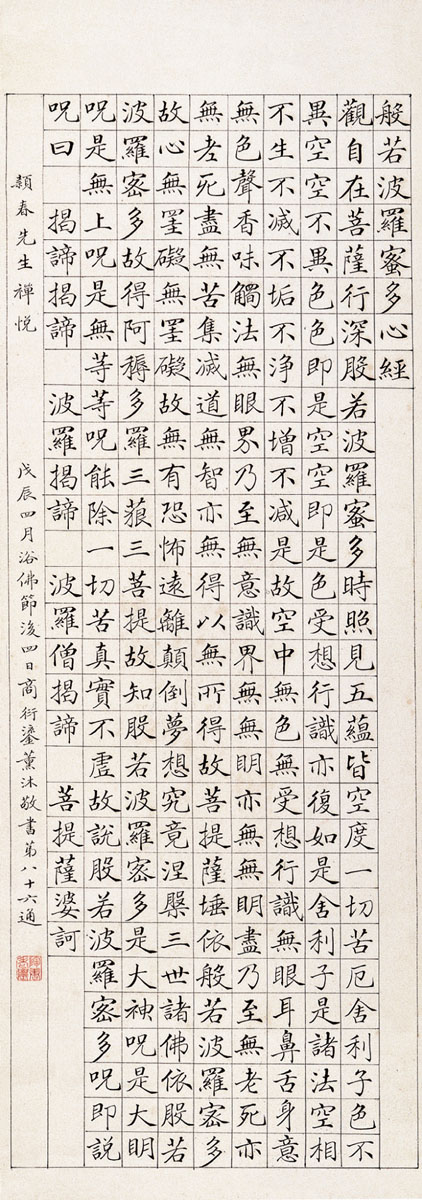 般若波羅蜜多心經
觀自在菩薩行深般若波羅蜜多時照見五蘊皆空度一切苦厄舍利子色不
異空空不異色色即是空空即是色受想行識亦復如是舍利子是諸法空相
不生不滅不垢不淨不增不減是故空中無色無受想行識無眼耳鼻舌身意
無色聲香味觸法無眼界乃至無意識界無無明亦無無明盡乃至無老死亦
無老死盡無苦集滅道無智亦無得以無所得故菩提薩埵依般若波羅密多
故心無罣礙無罣礙故無有恐怖遠離顛倒夢想究竟涅槃三世諸佛依般若
波羅密多故得阿耨多羅三藐三菩提故知般若波羅密多是大神呪是大明
呪是無上呪是無等等呪能除一切苦真實不虛故說般若波羅密多呪即說
呪曰 揭諦揭諦 波羅揭諦 波羅僧揭諦 菩提薩婆訶
頴春先生禪悅 戊辰四月浴佛節後四日商衍鎏薰沐敬書第八十六通